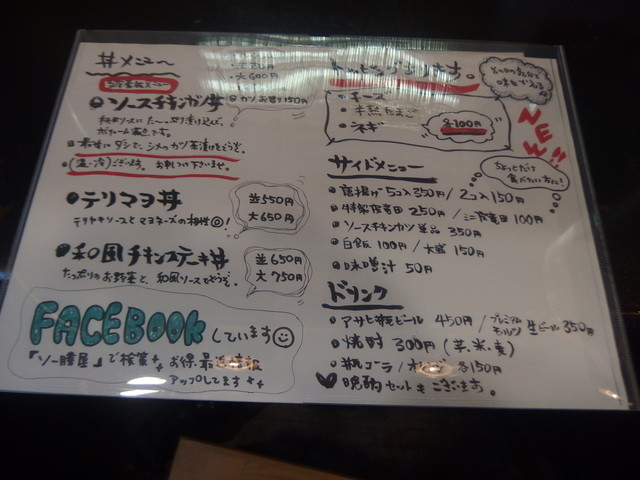 丼メニュー
大600円
ソースチキンカツ丼
カツお替り150円
最後にダシで、シメのカツ茶漬けをどうぞ。
(温・冷)ございます。お申しつけ下さいませ。
テリマヨ丼
並550円
大650円
テリヤキソースとマヨネーズの相性◎!
和風チキンステーキ丼
並650円
大750円
たっぷりのお野菜と、和風ソースでどうぞ。
FACEBOOKしています
「ソー勝屋」で検索
お得・最近情報
アップしてます
トッピングあります。
チーズ
半熟たまご
ネギ
各100円
NEW!!
ちょっとだけ
食べたい方に!
サイドメニュー
唐揚げ 5コ入350円/2コ入150円
250円/ 100円
ソースチキンカツ単品 350円
白飯 100円/大盛 150円
味噌汁 50円
ドリンク
アサヒ 瓶ビール 450円/プレミアムモルツ生ビール350円
焼酎 300円(芋、米、麦)
瓶コーラ/ 各150円
晩酌セットもございます。